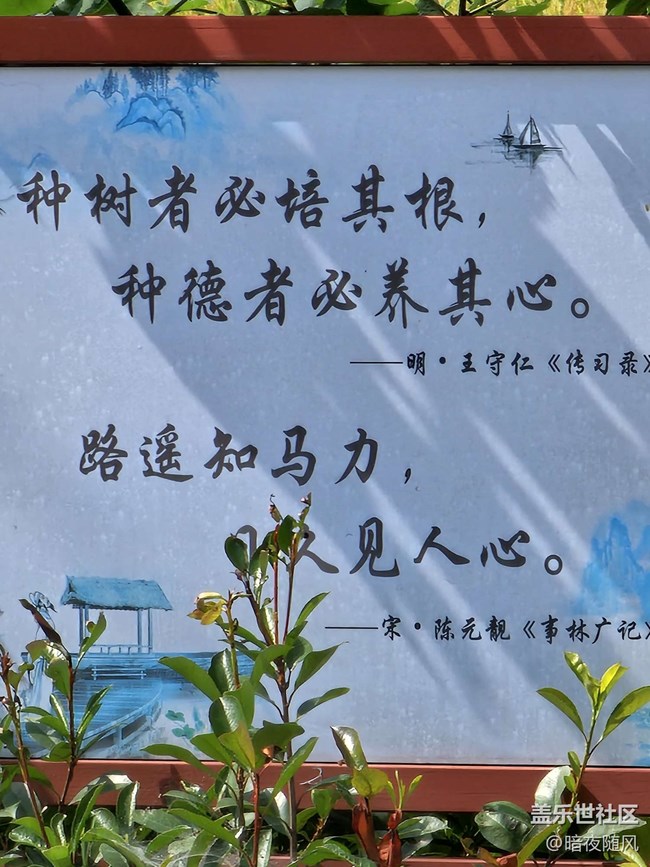 种树者必培其根，
种德者必养其心。
——明·王守仁《传习录》
路遥知马力，
久见人心。
——宋·陈元靓《事林广记》
盖乐世社区
@暗夜随风